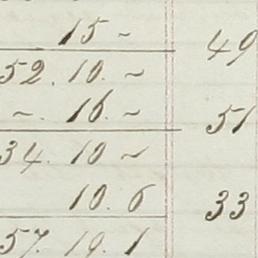 15 ~ 49
52. 10. ~
~. 16. ~ 51
34. 10 ~
10. 6 33
57. 19. 1